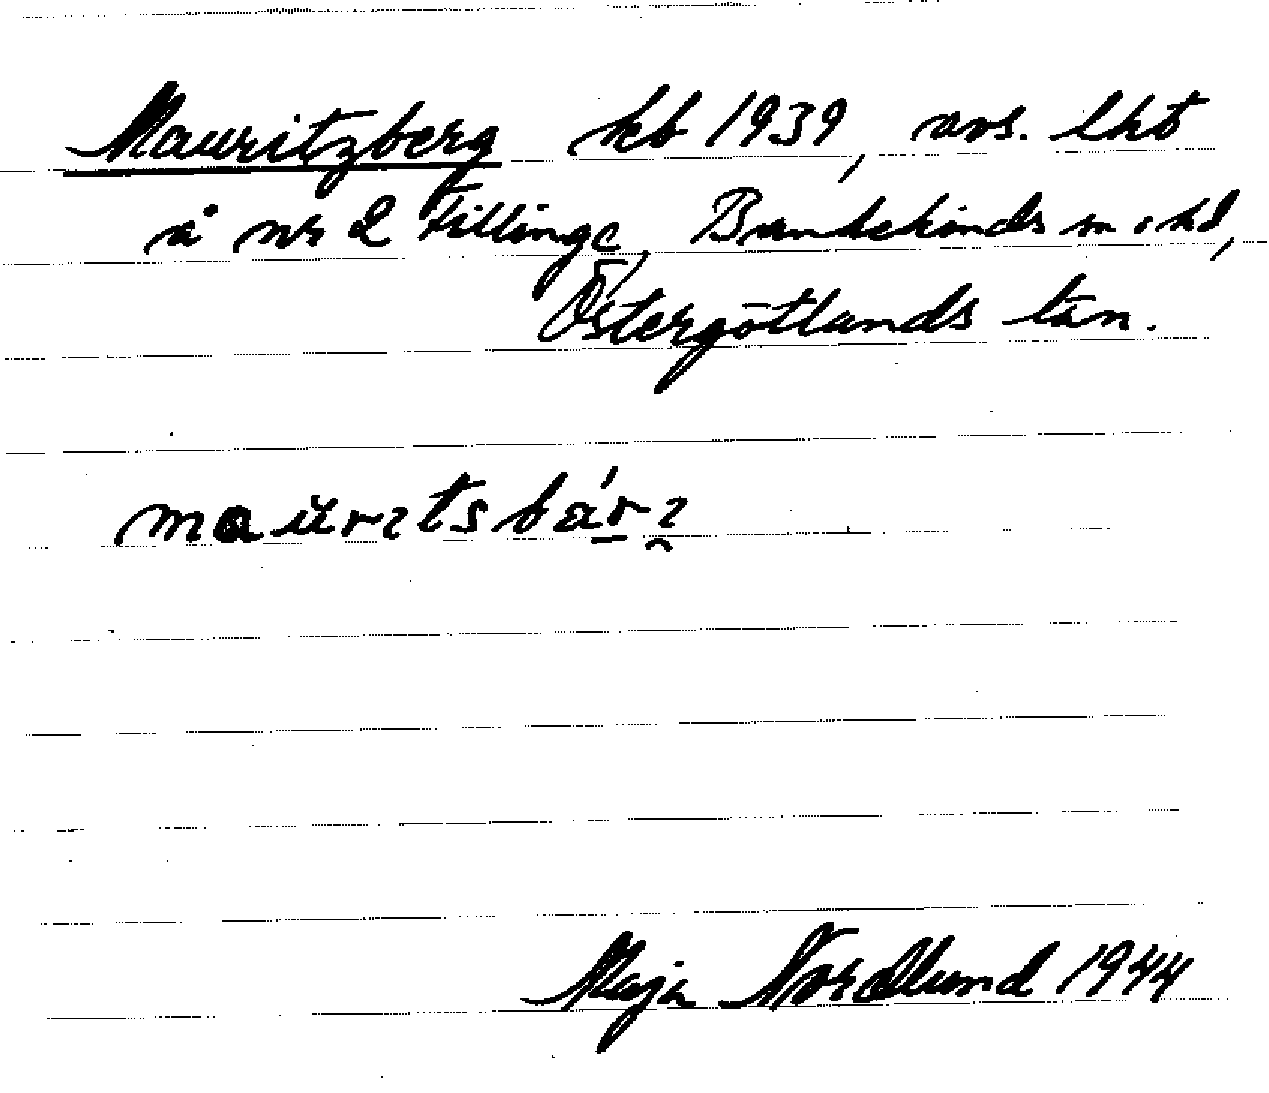 Mauritzberg kb 1939, avs. lht
å nr 2 Fillinge, Bankekinds sn o hd,
Östergötlands län.
maʉrɩtsbárɩ
Maja Nordlund 1944